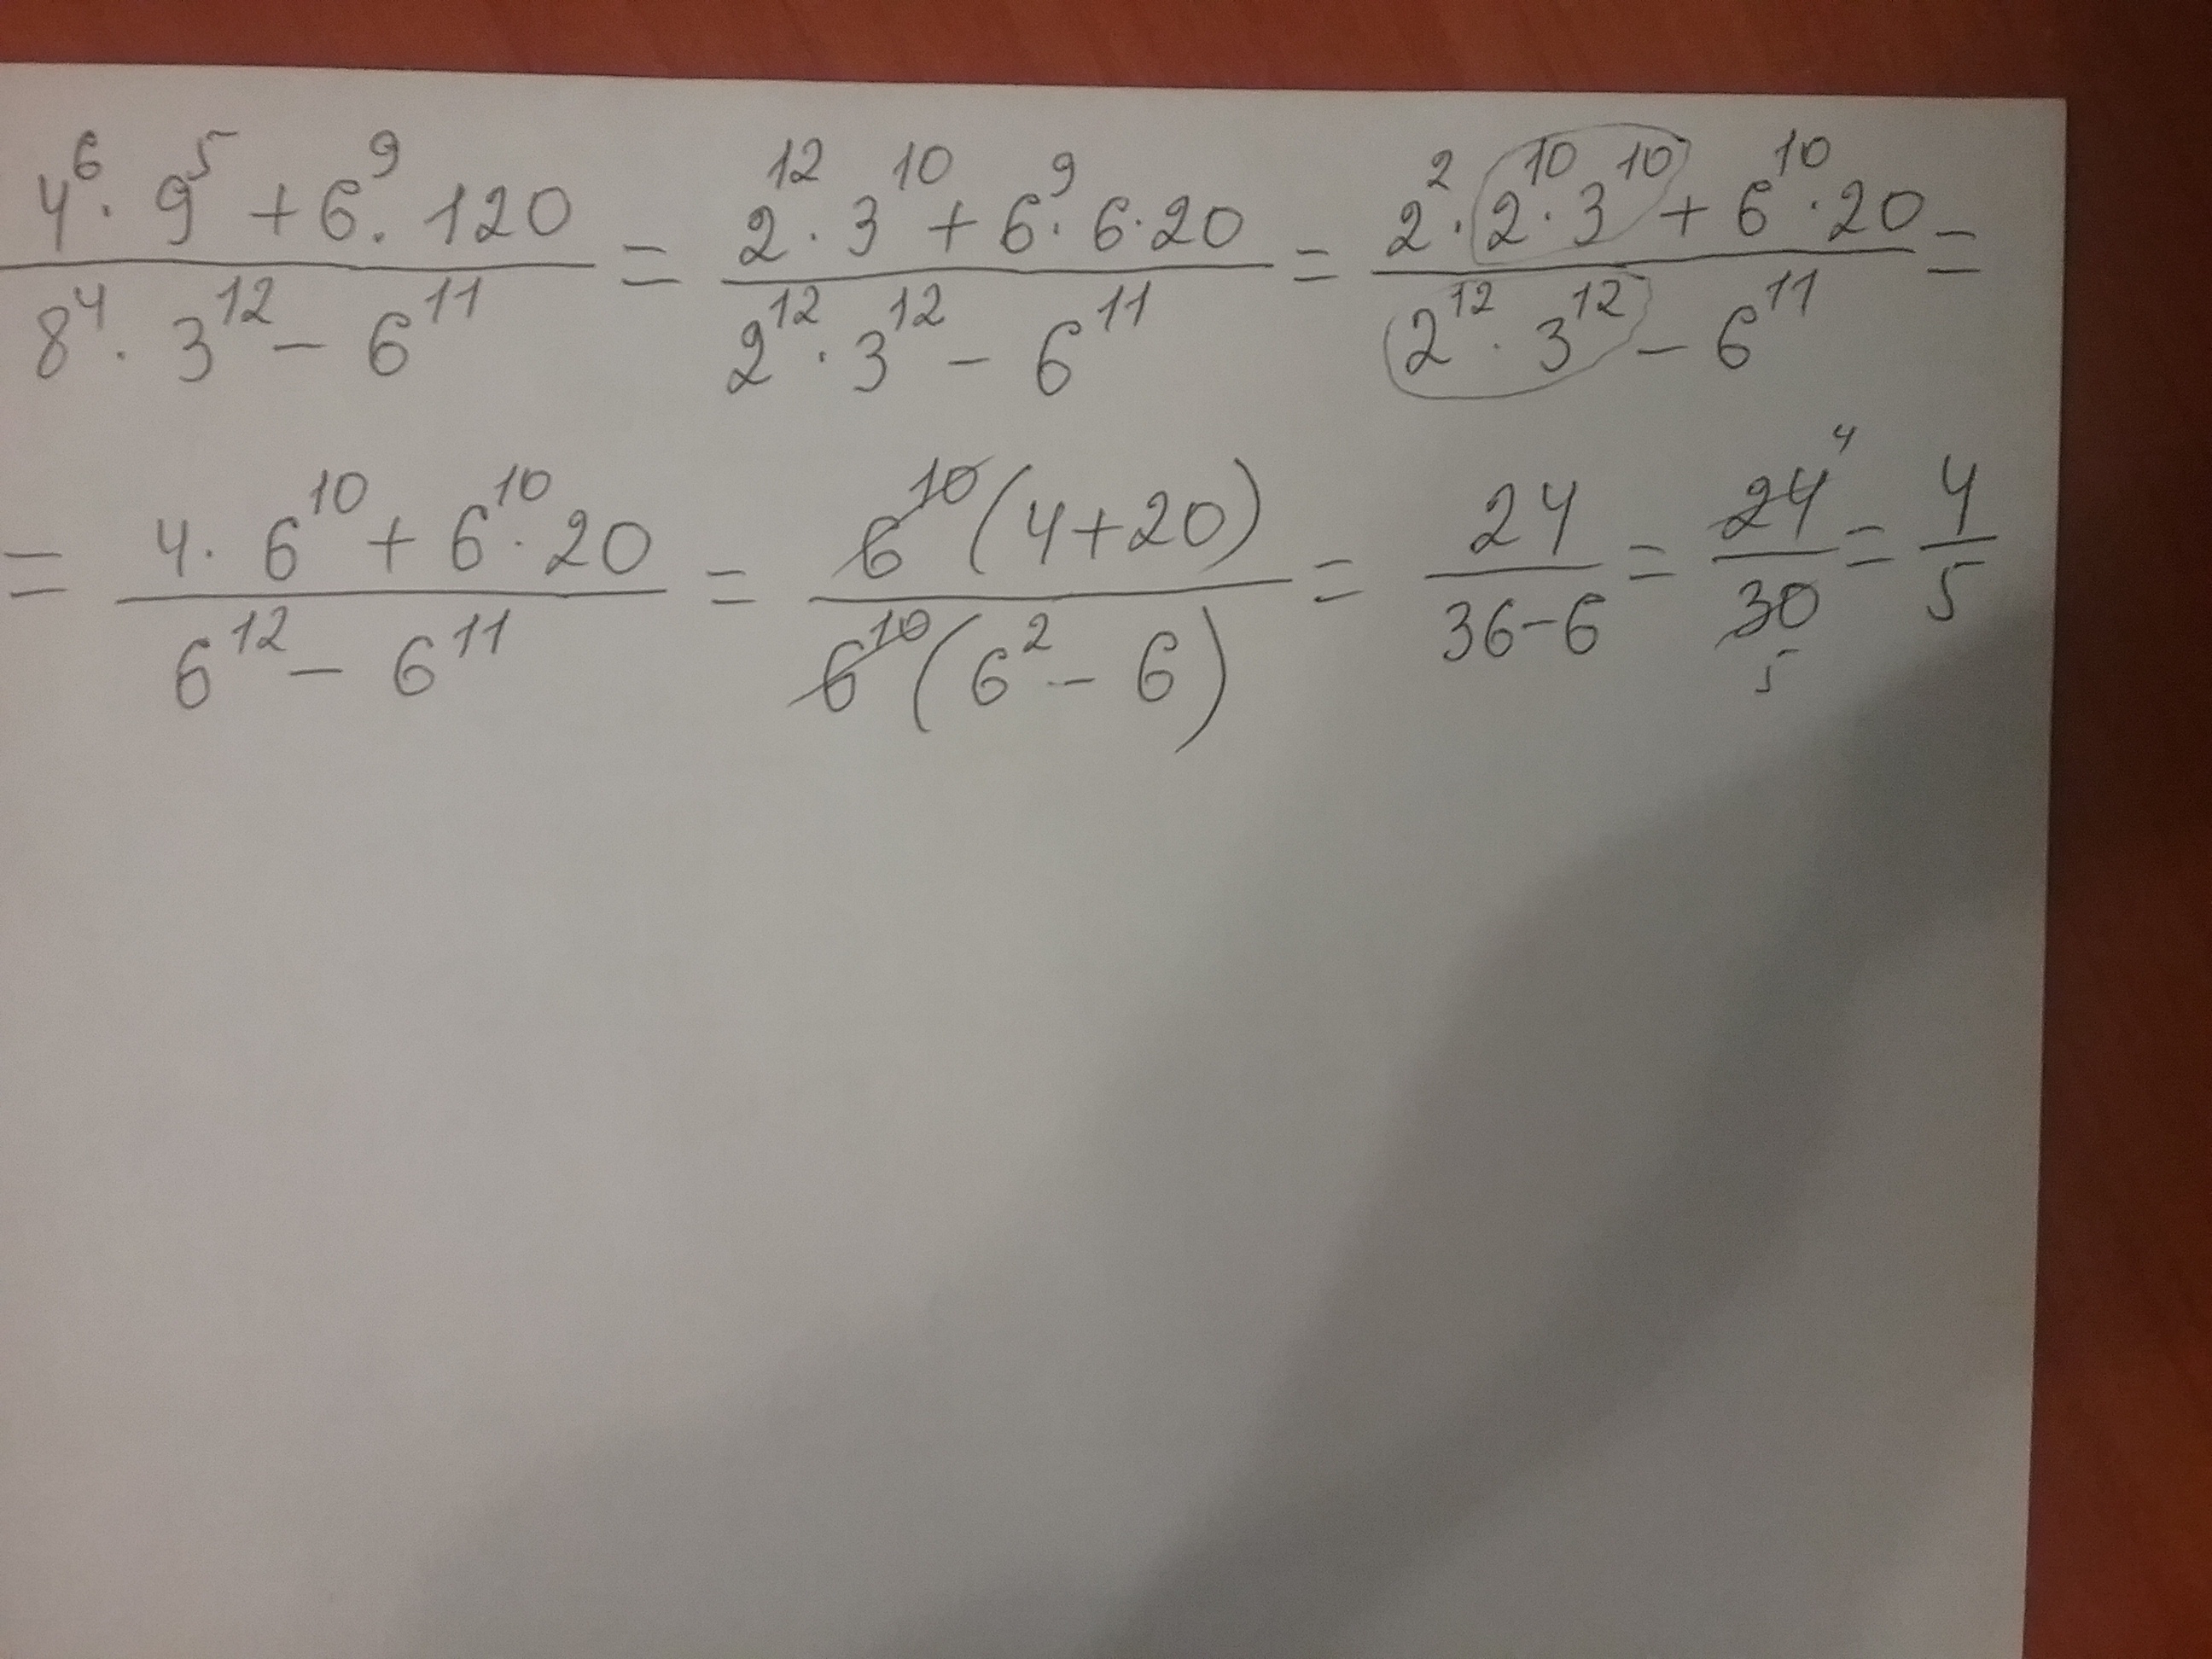 (4⁶ · 9⁵ + 6⁹ · 120)/(8⁴ · 3¹² − 6¹¹) = (2¹² · 3¹⁰ + 6⁹ · 6 · 20)/(2¹² · 3¹² − 6¹¹) = (2² · 2¹⁰ · 3¹⁰ + 6¹⁰ · 20)/(2¹² · 3¹² − 6¹¹) =
= (4 · 6¹⁰ + 6¹⁰ · 20)/(6¹² − 6¹¹) = 6¹⁰(4+20)/6¹⁰(6² − 6) = 24/(36−6) = 24 4/30 5 = 4/5